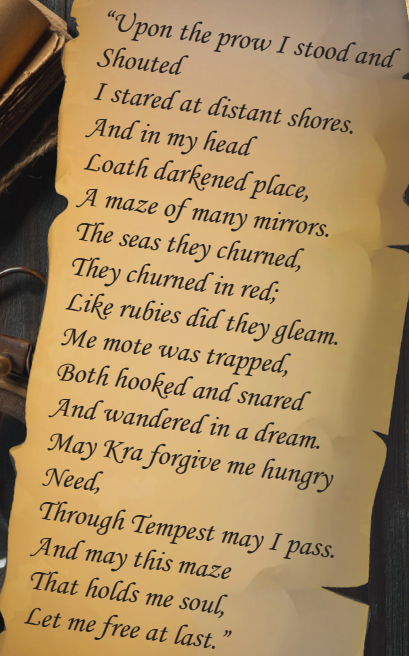 “Upon the prow I stood and
Shouted
I stared at distant shores.
And in my head
Loath darkened place,
A maze of many mirrors.
The seas they churned,
They churned in red;
Like rubies did they gleam.
Me mote was trapped,
Both hooked and snared
And wandered in a dream.
May Kra forgive me hungry
Need,
Through Tempest may I pass.
And may this maze
That holds me soul,
Let me free at last.”